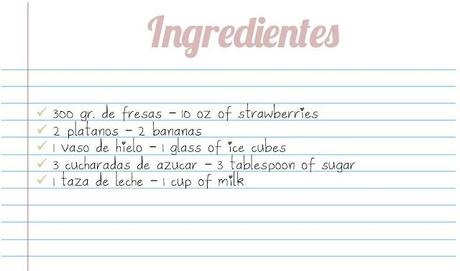 Ingredientes
300 gr. de fresas - 10 oz of strawberries
2 platanos - 2 bananas
1 vaso de hielo - 1 glass of ice cubes
3 cucharadas de azucar - 3 tablespoon of sugar
1 taza de leche - 1 cup of milk